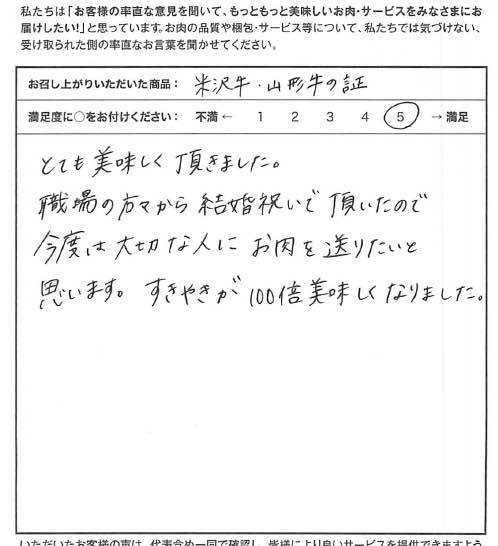 私たちは「お客様の率直な意見を聞いて、もっともっと美味しいお肉・サービスをみなさまにお
届けしたい!」と思っています。お肉の品質や梱包・サービス等について、私たちでは気づけない、
受け取られた側の率直なお言葉を聞かせてください。
お召し上がりいただいた商品: 米沢牛・山形牛の証
満足度に○をお付けください: 不満 ← 1 2 3 4 5 → 満足
とても美味しく頂きました。
職場の方々から結婚祝いで頂いたので
今度は大切な人にお肉を送りたいと
思います。すきやきが100倍美味しくなりました。
いただいたお客様の声は、代表含め一同で確認し、皆様により良いサービスを提供できますよう